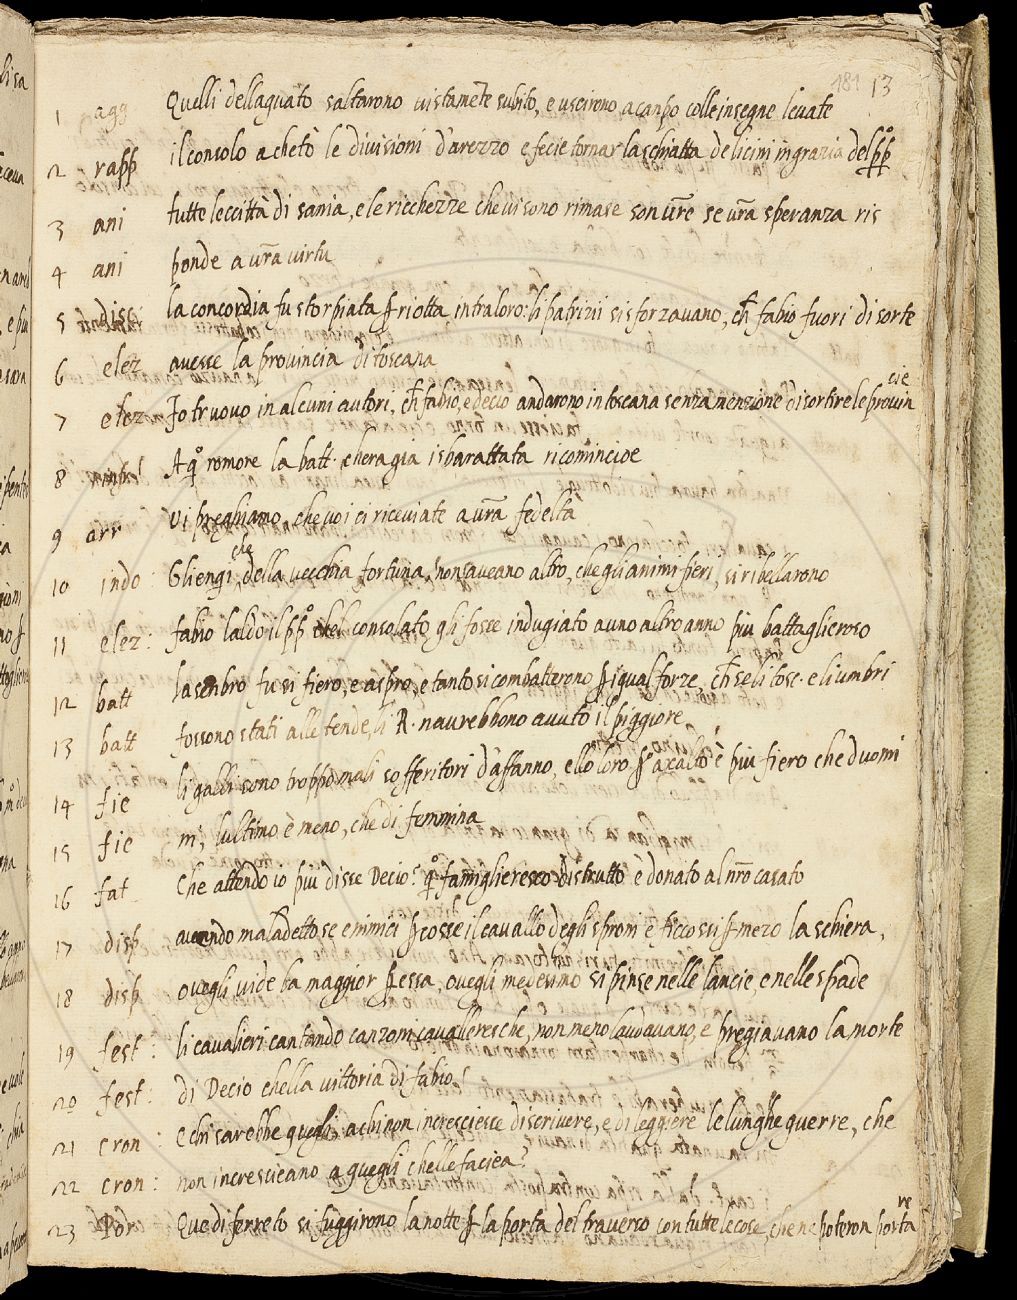 181 13
1 agg Quelli dell aguato saltarono vistamēte subito, e uscirono, a canpo colle insegne levate
2 rapp il consolo achetò le divisioni d'arezzo e fecie tornar la schiatta de licini in grazia del pp̊
3 ani tutte le città di sania, e le ricchezze che vi sono rimase son vr̄e se vr̄a speranza ris
4 ani ponde a vr̄a virtu
5 disc la concordia fu storpiata ꝑ riotta intra loro: li patrizii si sforzavano, ch̄ fabio fuori di sorte
6 elez avesse la provincia di toscana
7 elez Jo truovo in alcuni autori, ch̄ fabio, e decio andarono in toscana senza menzione di sortire le provin
cie
8 A qo̊ romore la batt. chera gia isbarattata ricomincioe
9 arr Vi preghiamo, che voi ci riceviate a vr̄a fedelta
10 indo: Gli engi, che della vecchia fortuna, non aveano altro, che gli animi fieri, si ribellarono
11 elez: fabio laldo il pp̊ chel consolato gli fosse indugiato a uno altro anno piu battaglieroso
12 batt la senbro fu si fiero, e aspro, e tanto si combatterono ꝑ igual forze, ch̄ se li tosc. e li umbri
13 batt fossono stati alle tende, li R. navrebbono avuto il piggiore
14 fie li galli sono troppo mali sofferitori d'affanno, e llo loro pͦ axalto è piu fiero che d'uomi
15 fie ni, lultimo è meno, che di femmina
16 fat Che attendo io piu disse Decio? qo̊ famiglieresco distrutto è donato al nr̄o casato
17 disp avendo maladetto se e nimici ꝑcosse il cavallo degli sproni e ficcossi ꝑ mezo la schiera,
18 disp ovegli vide la maggior pressa, ovegli medesimo si pinse nelle lancie, e nelle spade
19 fest: li cavalieri cantando canzoni cavalleresche, non meno laudavano, e pregiavano la morte
20 fest: di Decio chella vittoria di fabio
21 cron: E chi sarebbe quegli a chi non incresciesse di scrivere, e di leggiere le lunghe guerre, che
22 cron: non increscieano a quegli chelle faciea?
23 Que di ferreto si fuggirono la notte ꝑ la porta del traverso con tutte le cose, che ne poteron porta
re